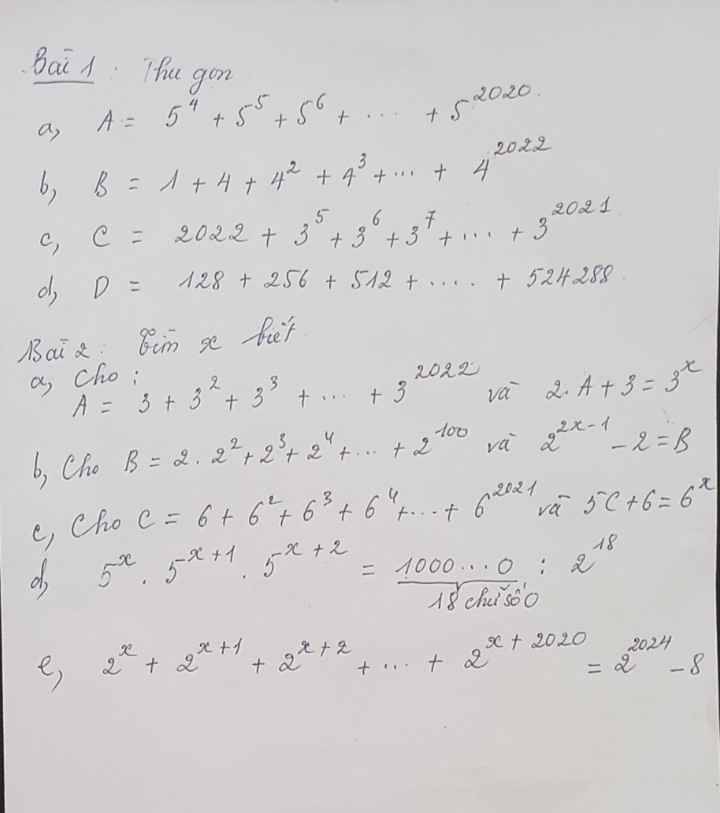 Bài 1: Thu gọn
a, A = 5⁴ + 5⁵ + 5⁶ + ... + 5²⁰²⁰.
b, B = 1 + 4 + 4² + 4³ + ... + 4²⁰²²
c, C = 2022 + 3⁵ + 3⁶ + 3⁷ + ... + 3²⁰²¹
d, D = 128 + 256 + 512 + ..... + 524288.
Bài 2: Tìm x biết
a, Cho:
A = 3 + 3² + 3³ + ... + 3²⁰²² và 2.A + 3 = 3ˣ
b, Cho B = 2.2² + 2³ + 2⁴ + ... + 2¹⁰⁰ và 2²ˣ⁻¹ - 2 = B
c, Cho C = 6 + 6² + 6³ + 6⁴ + ... + 6²⁰²¹ và 5C + 6 = 6ˣ
d, 5ˣ . 5ˣ⁺¹ . 5ˣ⁺² = 1000...0 : 2¹⁸
18 chữ số 0
e, 2ˣ + 2ˣ⁺¹ + 2ˣ⁺² + ... + 2ˣ⁺²⁰²⁰ = 2²⁰²⁴ - 8